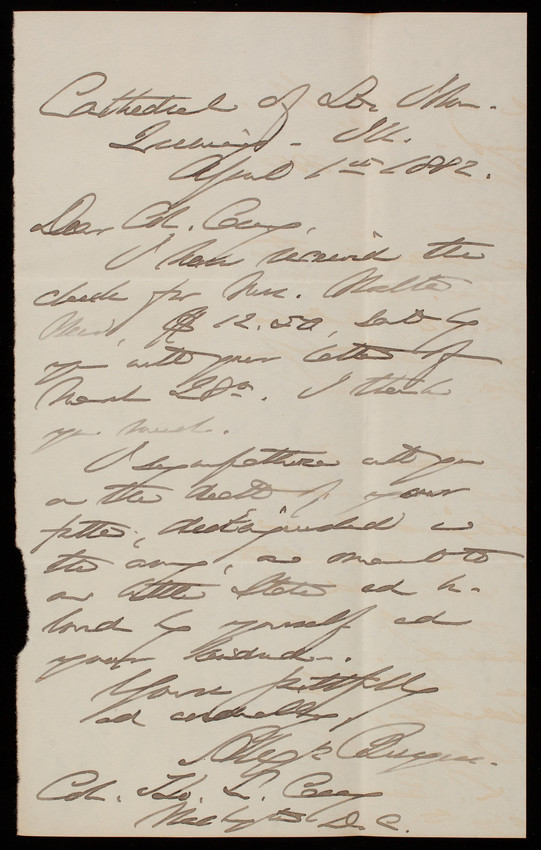 Cathedral of St. John.
Quincy - Ill.
April 1st 1882.
Dear Col. Casey,
I have received the
check for Mrs.
$12.50, sent by
you with your letter of
March 28th. I thank
you much.
I sympathize with you
on the death of your
father, distinguished in
the army, an honor to
our little State and be-
loved by yourself and
your kindred.
Yours faithfully
and cordially,
Alex. Burgess.
Col. Tho. L. Casey
Washington D.C.